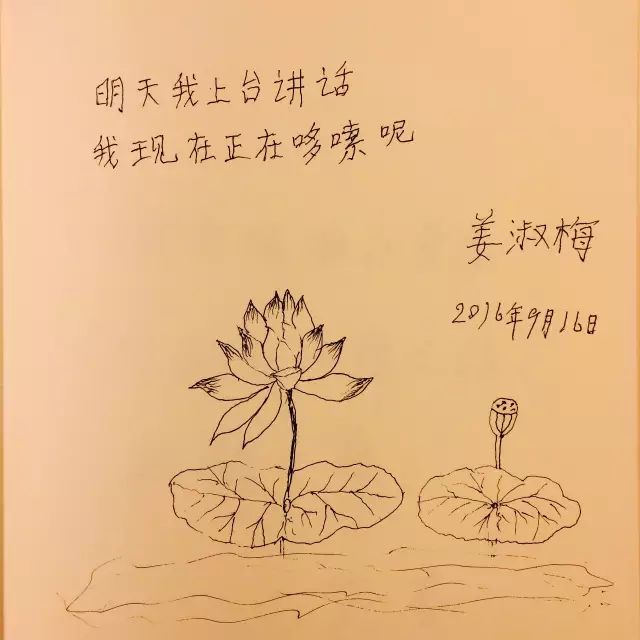 明天我上台讲话
我现在正在哆嗦呢
姜淑梅
2016年9月16日